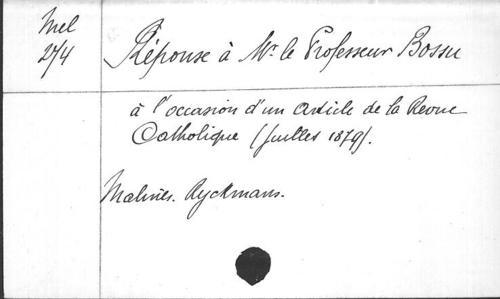 Mel
274
Réponse à Mr. le Professeur Bossu
à l'occasion d'un Article de la Revue
Catholique (Juillet 1879).
Malines. Ryckmans.